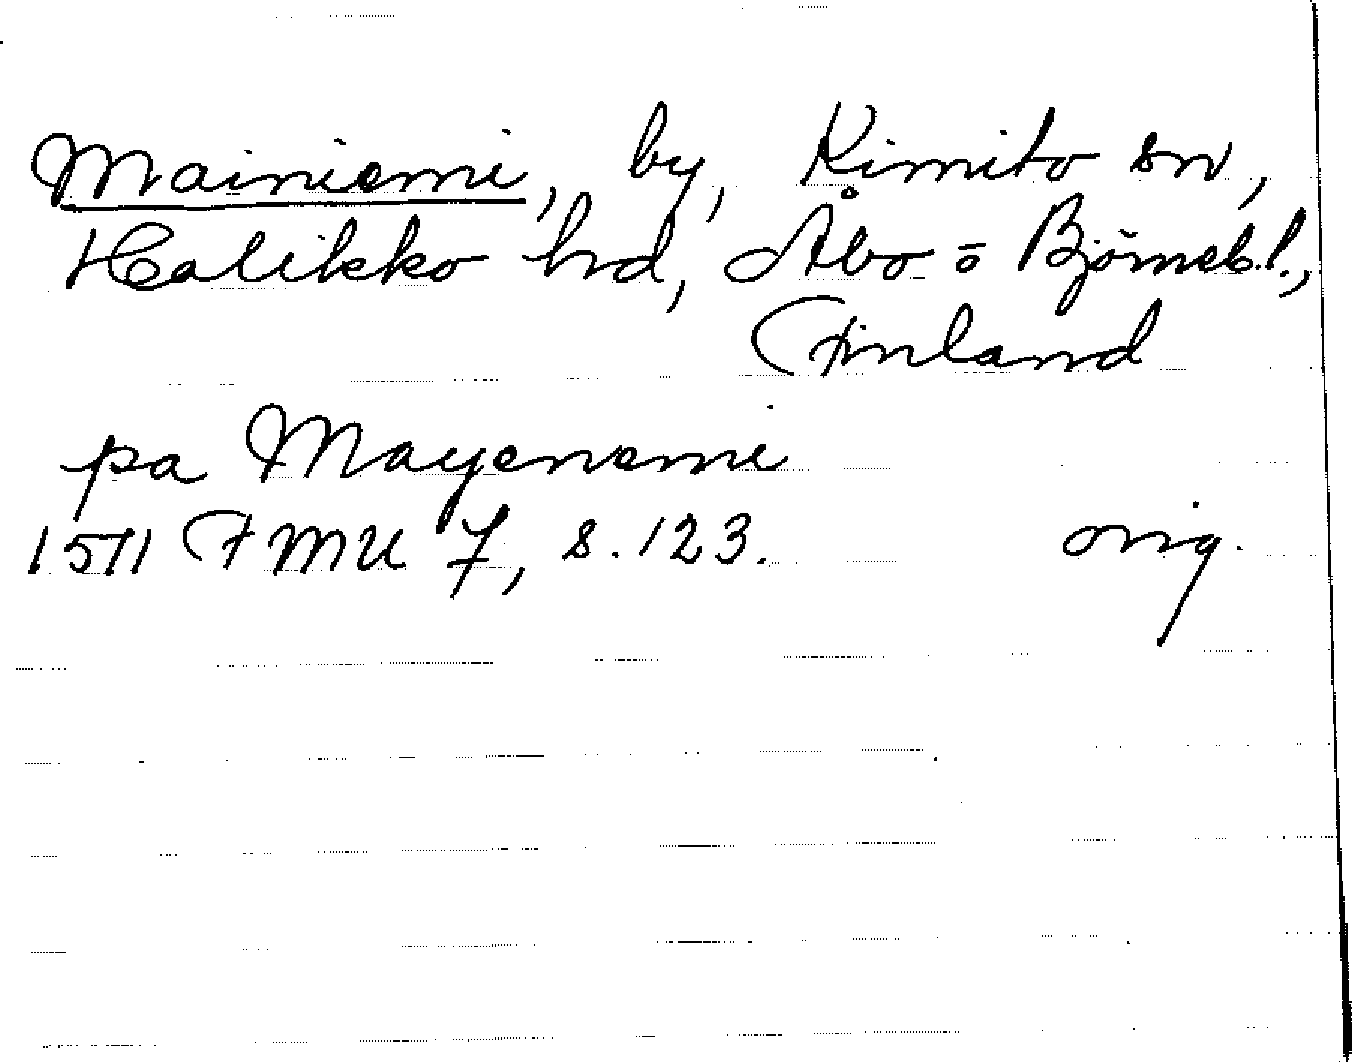 Mainiemi, by, Kimito sn,
Halikko hd, Åbo o Björnebl.,
Finland
pa Mayenemi
1511 FMU 7, s. 123. orig.